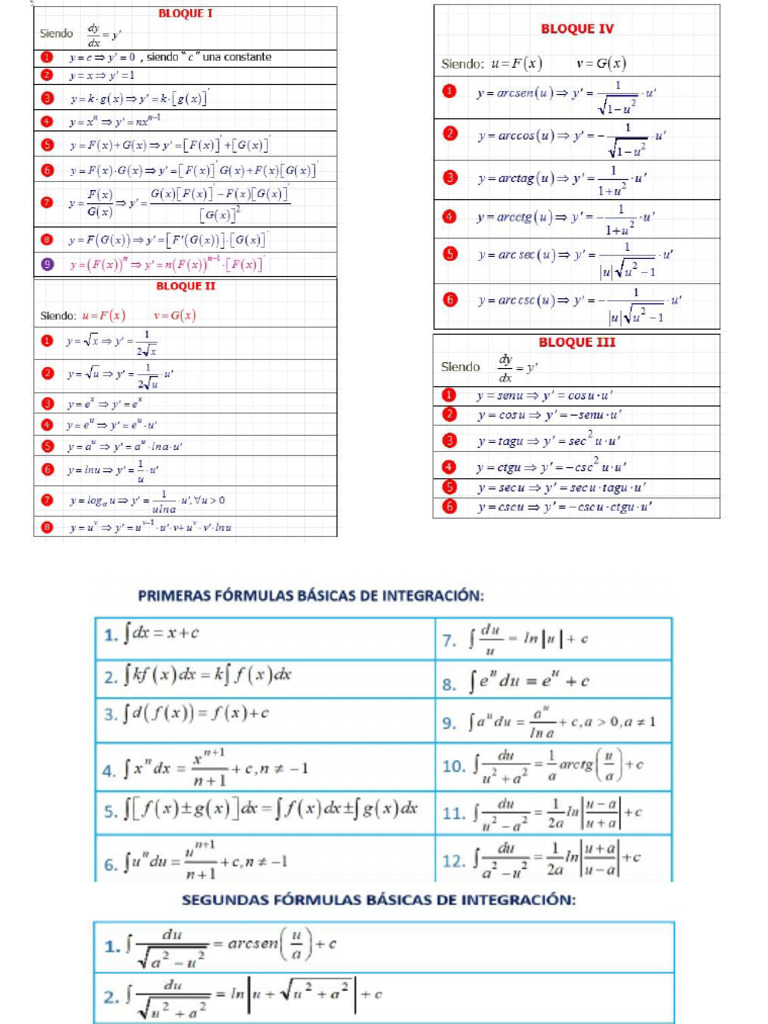 BLOQUE I
Siendo dy/dx = y'
1 y = c ⇒ y' = 0 , siendo " c " una constante
2 y = x ⇒ y' = 1
3 y = k · g(x) ⇒ y' = k · [g(x)]'
4 y = xⁿ ⇒ y' = nxⁿ⁻¹
5 y = F(x) + G(x) ⇒ y' = [F(x)]' + [G(x)]'
6 y = F(x) · G(x) ⇒ y' = [F(x)]' G(x) + F(x)[G(x)]'
7 y = F(x)/G(x) ⇒ y' = (G(x)[F(x)]' − F(x)[G(x)]')/[G(x)]²
8 y = F(G(x)) ⇒ y' = [F'(G(x))] · [G(x)]'
9 y = (F(x))ⁿ ⇒ y' = n(F(x))ⁿ⁻¹ · [F(x)]'
BLOQUE II
Siendo: u = F(x) v = G(x)
1 y = √x ⇒ y' = 1/(2√x)
2 y = √u ⇒ y' = 1/(2√u) · u'
3 y = eˣ ⇒ y' = eˣ
4 y = eᵘ ⇒ y' = eᵘ · u'
5 y = aᵘ ⇒ y' = aᵘ · lna · u'
6 y = lnu ⇒ y' = 1/u · u'
7 y = logₐ u ⇒ y' = 1/(ulna) · u', ∀u > 0
8 y = uᵛ ⇒ y' = uᵛ⁻¹ · u' · v + uᵛ · v' · lnu
BLOQUE IV
Siendo: u = F(x) v = G(x)
1 y = arcsen(u) ⇒ y' = 1/√(1−u²) · u'
2 y = arccos(u) ⇒ y' = − 1/√(1−u²) · u'
3 y = arctag(u) ⇒ y' = 1/(1+u²) · u'
4 y = arcctg(u) ⇒ y' = − 1/(1+u²) · u'
5 y = arc sec(u) ⇒ y' = 1/(|u|√(u²−1)) · u'
6 y = arc csc(u) ⇒ y' = − 1/(|u|√(u²−1)) · u'
BLOQUE III
Siendo dy/dx = y'
1 y = senu ⇒ y' = cosu · u'
2 y = cosu ⇒ y' = −senu · u'
3 y = tagu ⇒ y' = sec² u · u'
4 y = ctgu ⇒ y' = −csc² u · u'
5 y = secu ⇒ y' = secu · tagu · u'
6 y = cscu ⇒ y' = −cscu · ctgu · u'
PRIMERAS FÓRMULAS BÁSICAS DE INTEGRACIÓN:
1. ∫dx = x + c
2. ∫kf(x)dx = k∫f(x)dx
3. ∫d(f(x)) = f(x) + c
4. ∫xⁿdx = xⁿ⁺¹/(n+1) + c, n ≠ −1
5. ∫[f(x) ± g(x)]dx = ∫f(x)dx ± ∫g(x)dx
6. ∫uⁿdu = uⁿ⁺¹/(n+1) + c, n ≠ −1
7. ∫du/u = ln|u| + c
8. ∫eᵘdu = eᵘ + c
9. ∫aᵘdu = aᵘ/ln a + c, a > 0, a ≠ 1
10. ∫du/(u²+a²) = 1/a arctg(u/a) + c
11. ∫du/(u²−a²) = 1/2a ln|(u−a)/(u+a)| + c
12. ∫du/(a²−u²) = 1/2a ln|(u+a)/(u−a)| + c
SEGUNDAS FÓRMULAS BÁSICAS DE INTEGRACIÓN:
1. ∫du/√(a²−u²) = arcsen(u/a) + c
2. ∫du/√(u²+a²) = ln|u + √(u²+a²)| + c